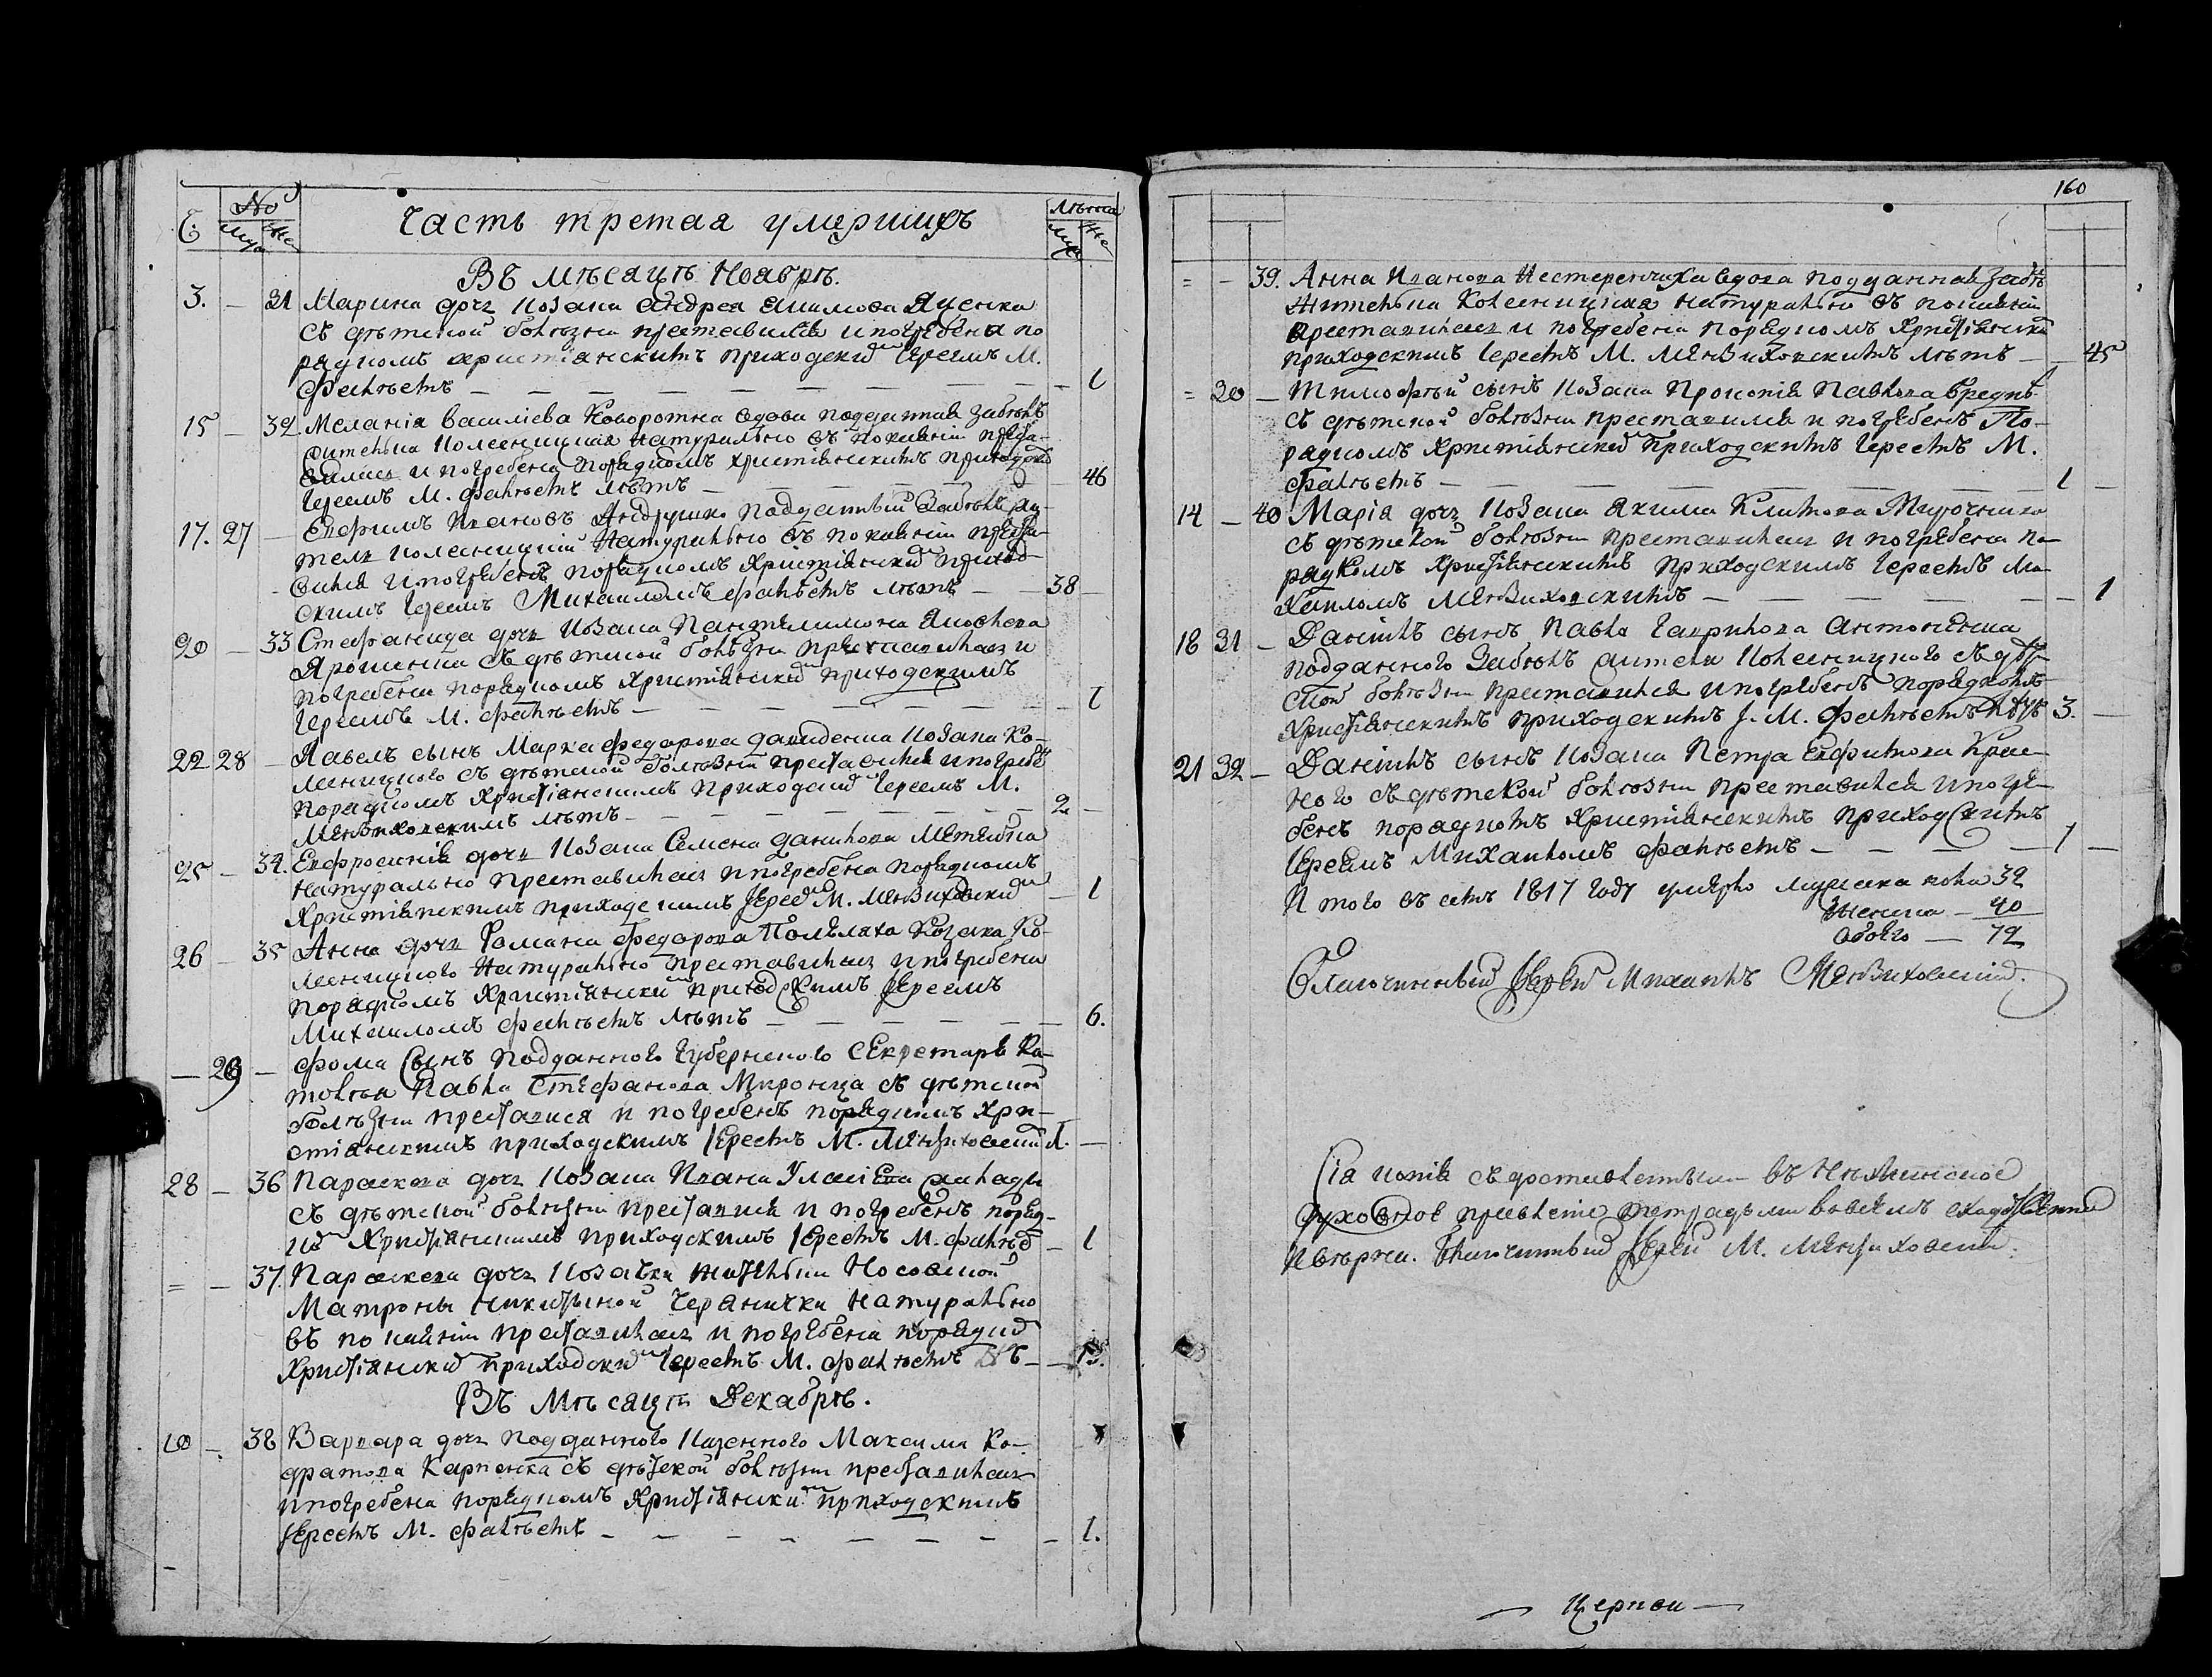 Ч. № муж. же
Часть третая умершихъ
лѣта муж. же
Въ мѣсяцѣ Ноябрѣ.
3. — 31 Марина дочь козака Андрея Акимова Яценка
съ дѣтской болѣзни преставилась и погребена по
рядкомъ христіанскимъ приходскимъ Іереемъ М.
Фалѣемъ — 1
15 — 32 Меланія Василіева Коворотна вдова подданная Забѣлъ
жителька колесницкая натурально въ покаяніи преста-
вилась и погребена порядкомъ христіанскимъ приходским
Іереемъ М. Фалѣемъ лѣтъ — 46
17. 27 — Евфимъ Ивановъ Андрушко подданный Забѣлъ жи-
тель колесницкій натурально въ покаяніи преста-
вился и погребенъ порядкомъ христіанским приход-
скимъ Іереемъ Михаиломъ Фалѣемъ лѣтъ — 38 —
20 — 33 Стефанида дочь козака Пантелимона Яковлева
Ярошенка съ дѣтской болѣзни преставилась и
погребена порядкомъ христіанским приходскимъ
Іереемъ М. Фалѣемъ — 1
22 28 — Павелъ сынъ Марка Федорова Давиденка козака ко-
лесницкого съ дѣтской болѣзни преставился и погребе
порядкомъ христіанскимъ приходским Іереемъ М.
Мензиховскимъ лѣтъ — 2 —
25 — 34. Евфросинія дочь козака Семена Данилова
натурально преставилась и погребена порядкомъ
христіанскимъ приходскимъ Іерее М. Мензиховским — 1
26 — 35 Анна дочь Романа Федорова козака ко-
лесницкого натурально преставилась и погребена
порядкомъ христіански приходскимъ Іереемъ
Михаиломъ Фалѣемъ лѣтъ — 6.
— 29 — Фома сынъ подданного Губернского Секретаря Ка-
Павла Стефанова Миронца съ дѣтской
болѣзни преставися и погребенъ порядкомъ хри-
стіанскимъ приходскимъ Іереемъ М. Мензиховским 1. —
28 — 36 Параскева дочь козака Ивана
съ дѣтской болѣзни преставися и погребенъ поряд-
ко христіанскимъ приходскимъ Іереемъ М. Фалѣе — 1
= — 37. Параскева дочь козачки жительки Носовской
Матроны Никитиной натурально
въ покаяніи преставилась и погребена порядко
христіанским приходским Іереемъ М. Фалѣемъ — 15.
Въ Мѣсяцѣ Декабрѣ.
10 — 38 Варвара дочь подданного казенного Максима Ко-
дратова Карпенка съ дѣтской болѣзни преставилась
и погребена порядкомъ христіански приходскимъ
Іереемъ М. Фалѣемъ — 1.
160
= — 39. Анна Иванова Нестеренчиха вдова подданная Забѣ
жителька колесницкая натурально въ покаяніи
преставилась и погребена порядкомъ христіански
приходскимъ Іереемъ М. Мензиховскимъ лѣтъ — 45
= 30 — Тимофѣй сынъ козака Прокопія Павлова
съ дѣтской болѣзни преставился и погребенъ по-
рядкомъ христіански приходскимъ Іереемъ М.
Фалѣемъ — 1 —
14 — 40 Марія дочь козака Якима Климова
съ дѣтской болѣзни преставилась и погребена по-
рядкомъ христіанскимъ приходскимъ Іереемъ Ми-
хаиломъ Мензиховскимъ — 1
18 31 — Даніилъ сынъ Павла Гаврилова Антоненка
подданного Забѣлъ жителя колесницкого съ дѣт-
ской болѣзни преставился и погребенъ порядкомъ
христіанскимъ приходскимъ І. М. Фалѣемъ 3. —
21 32 — Даніилъ сынъ козака Петра Евфимова Крас-
ного съ дѣтской болѣзни преставился и погре-
бенъ порядкомъ христіанскимъ приходскимъ
Іереемъ Михаиломъ Фалѣемъ — 1 —
И того въ семъ 1817 году умерло мужеска пола 32
женска — 40
обоего — 72
Благочинный Іерей Михаилъ Мензиховскій.
Сія копія съ доставленными въ Нѣжинское
духовное правленіе тетрадьми вовсемъ сходственна
и вѣрна. Благочинный Іерей М. Мензиховскій.
— Церкви —